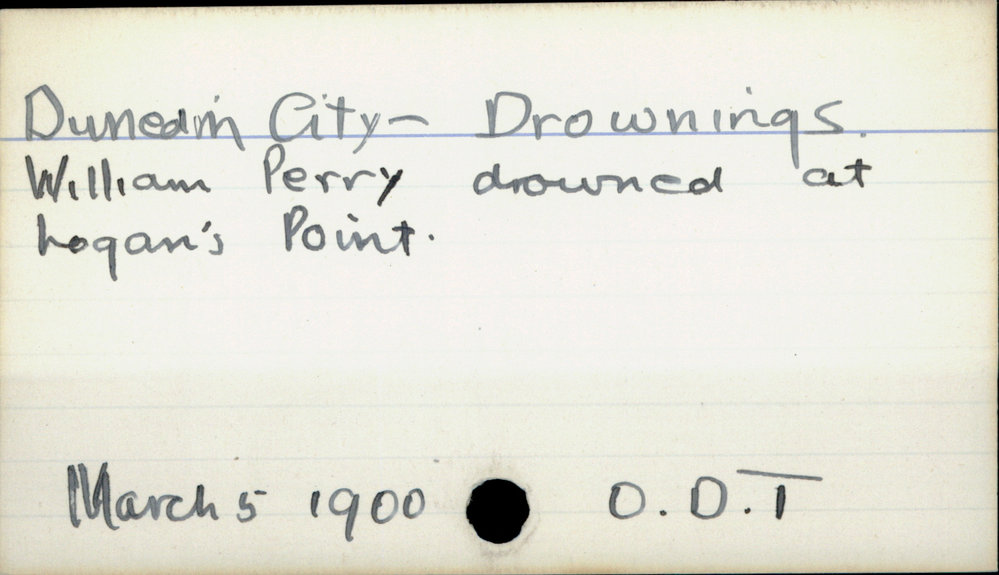 Dunedin City - Drownings.
William Perry drowned at
Logan's Point.
March 5 1900 O.D.T